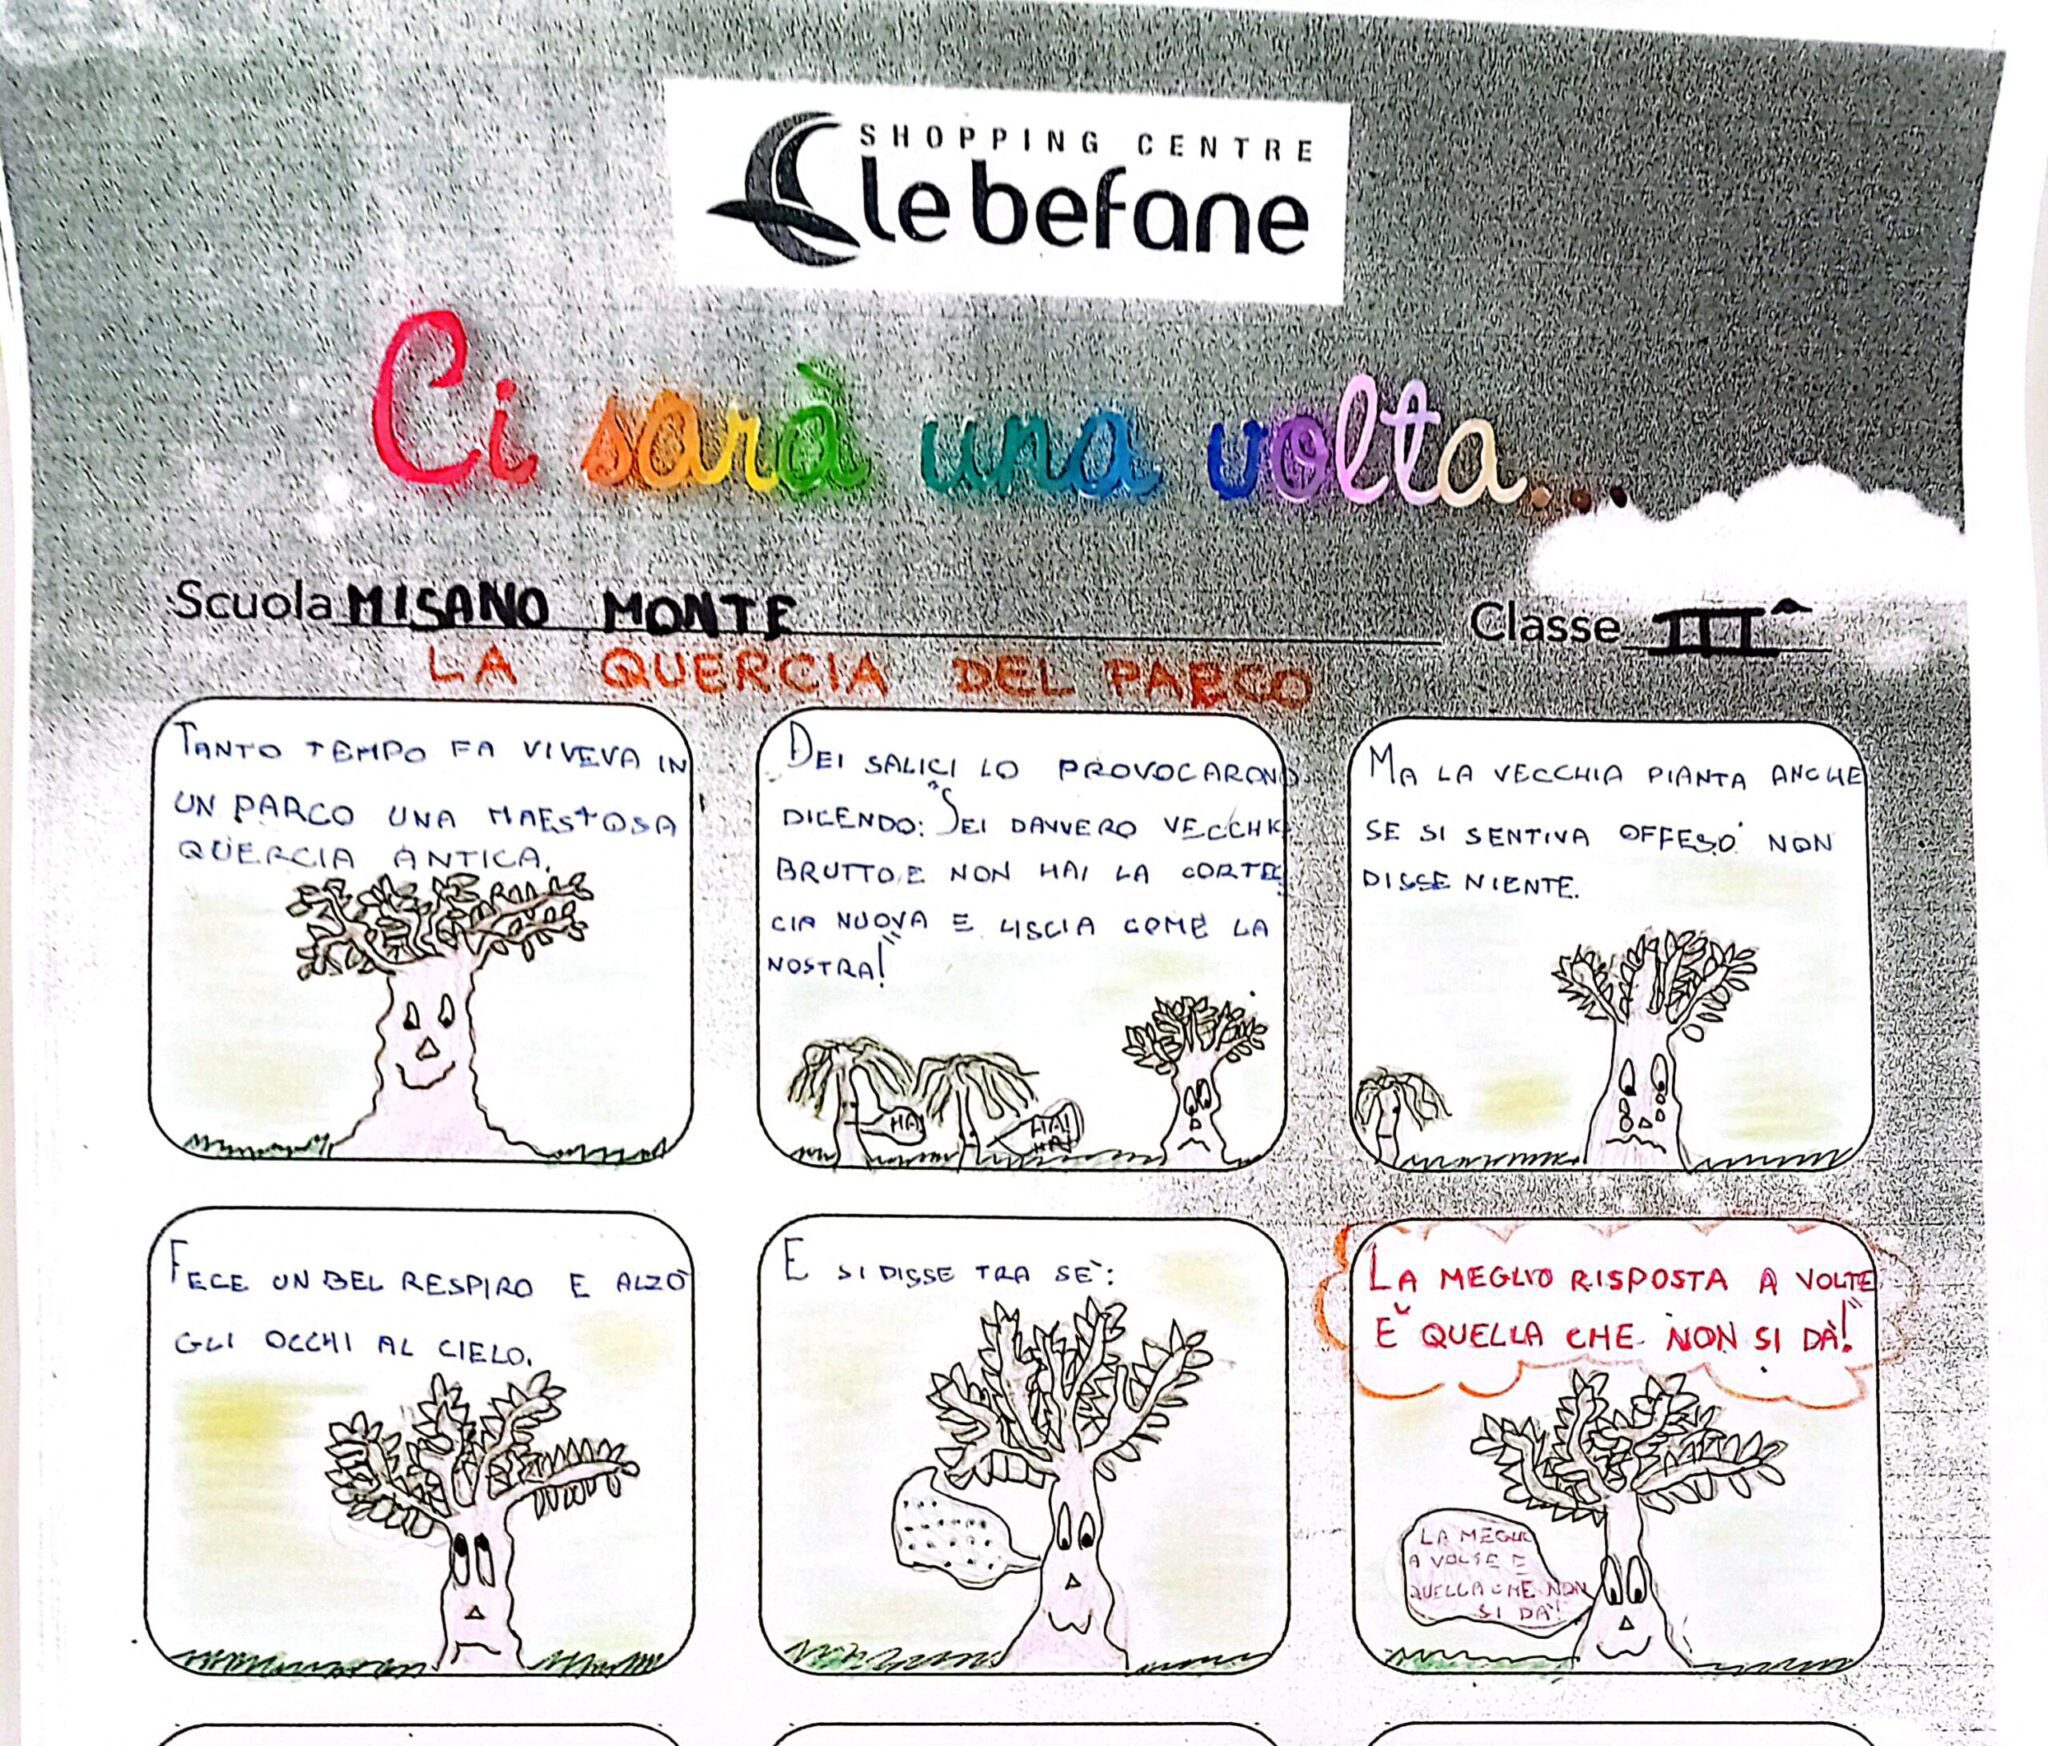 SHOPPING CENTRE
le befane
Ci sarà una volta...
Scuola MISANO MONTE Classe III^
LA QUERCIA DEL PARCO
TANTO TEMPO FA VIVEVA IN
UN PARCO UNA MAESTOSA
QUERCIA ANTICA.
DEI SALICI LO PROVOCARONO
DICENDO: "SEI DAVVERO VECCHIO
BRUTTO E NON HAI LA CORTEC
CIA NUOVA E LISCIA COME LA
NOSTRA!"
HA!
HA!
HA!
MA LA VECCHIA PIANTA ANCHE
SE SI SENTIVA OFFESO NON
DISSE NIENTE.
FECE UN BEL RESPIRO E ALZÒ
GLI OCCHI AL CIELO.
E SI DISSE TRA SÈ:
LA MEGLIO RISPOSTA A VOLTE
È QUELLA CHE NON SI DÀ!"
LA MEGLIO
A VOLTE E
QUELLA CHE NON
SI DÀ!